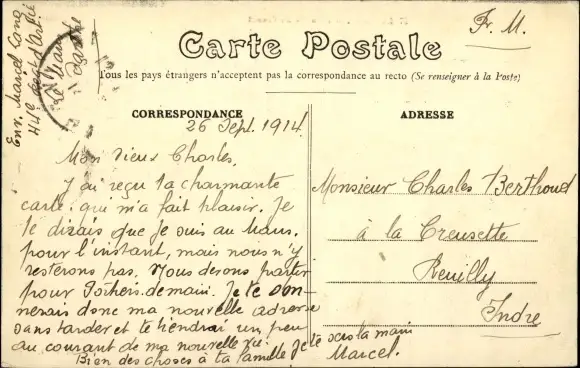 Env. Marcel Lang
44e Regt d'Artie
Le Mans
Sarthe
F. M.
Carte Postale
Tous les pays étrangers n'acceptent pas la correspondance au recto (Se renseigner à la Poste)
CORRESPONDANCE
ADRESSE
26 Sept. 1914
Mon vieux Charles,
J'ai reçu ta charmante
carte qui m'a fait plaisir. Je
te dirais que je suis au Mans
pour l'instant, mais nous n'y
resterons pas. Nous devons partir
pour Poitiers demain. Je te don-
nerais donc ma nouvelle adresse
sans tarder et te tiendrai un peu
au courant de ma nouvelle vie.
Bien des choses à ta famille Je te serre la main
Marcel.
Monsieur Charles Berthoud
à la Creusette
Reuilly
Indre